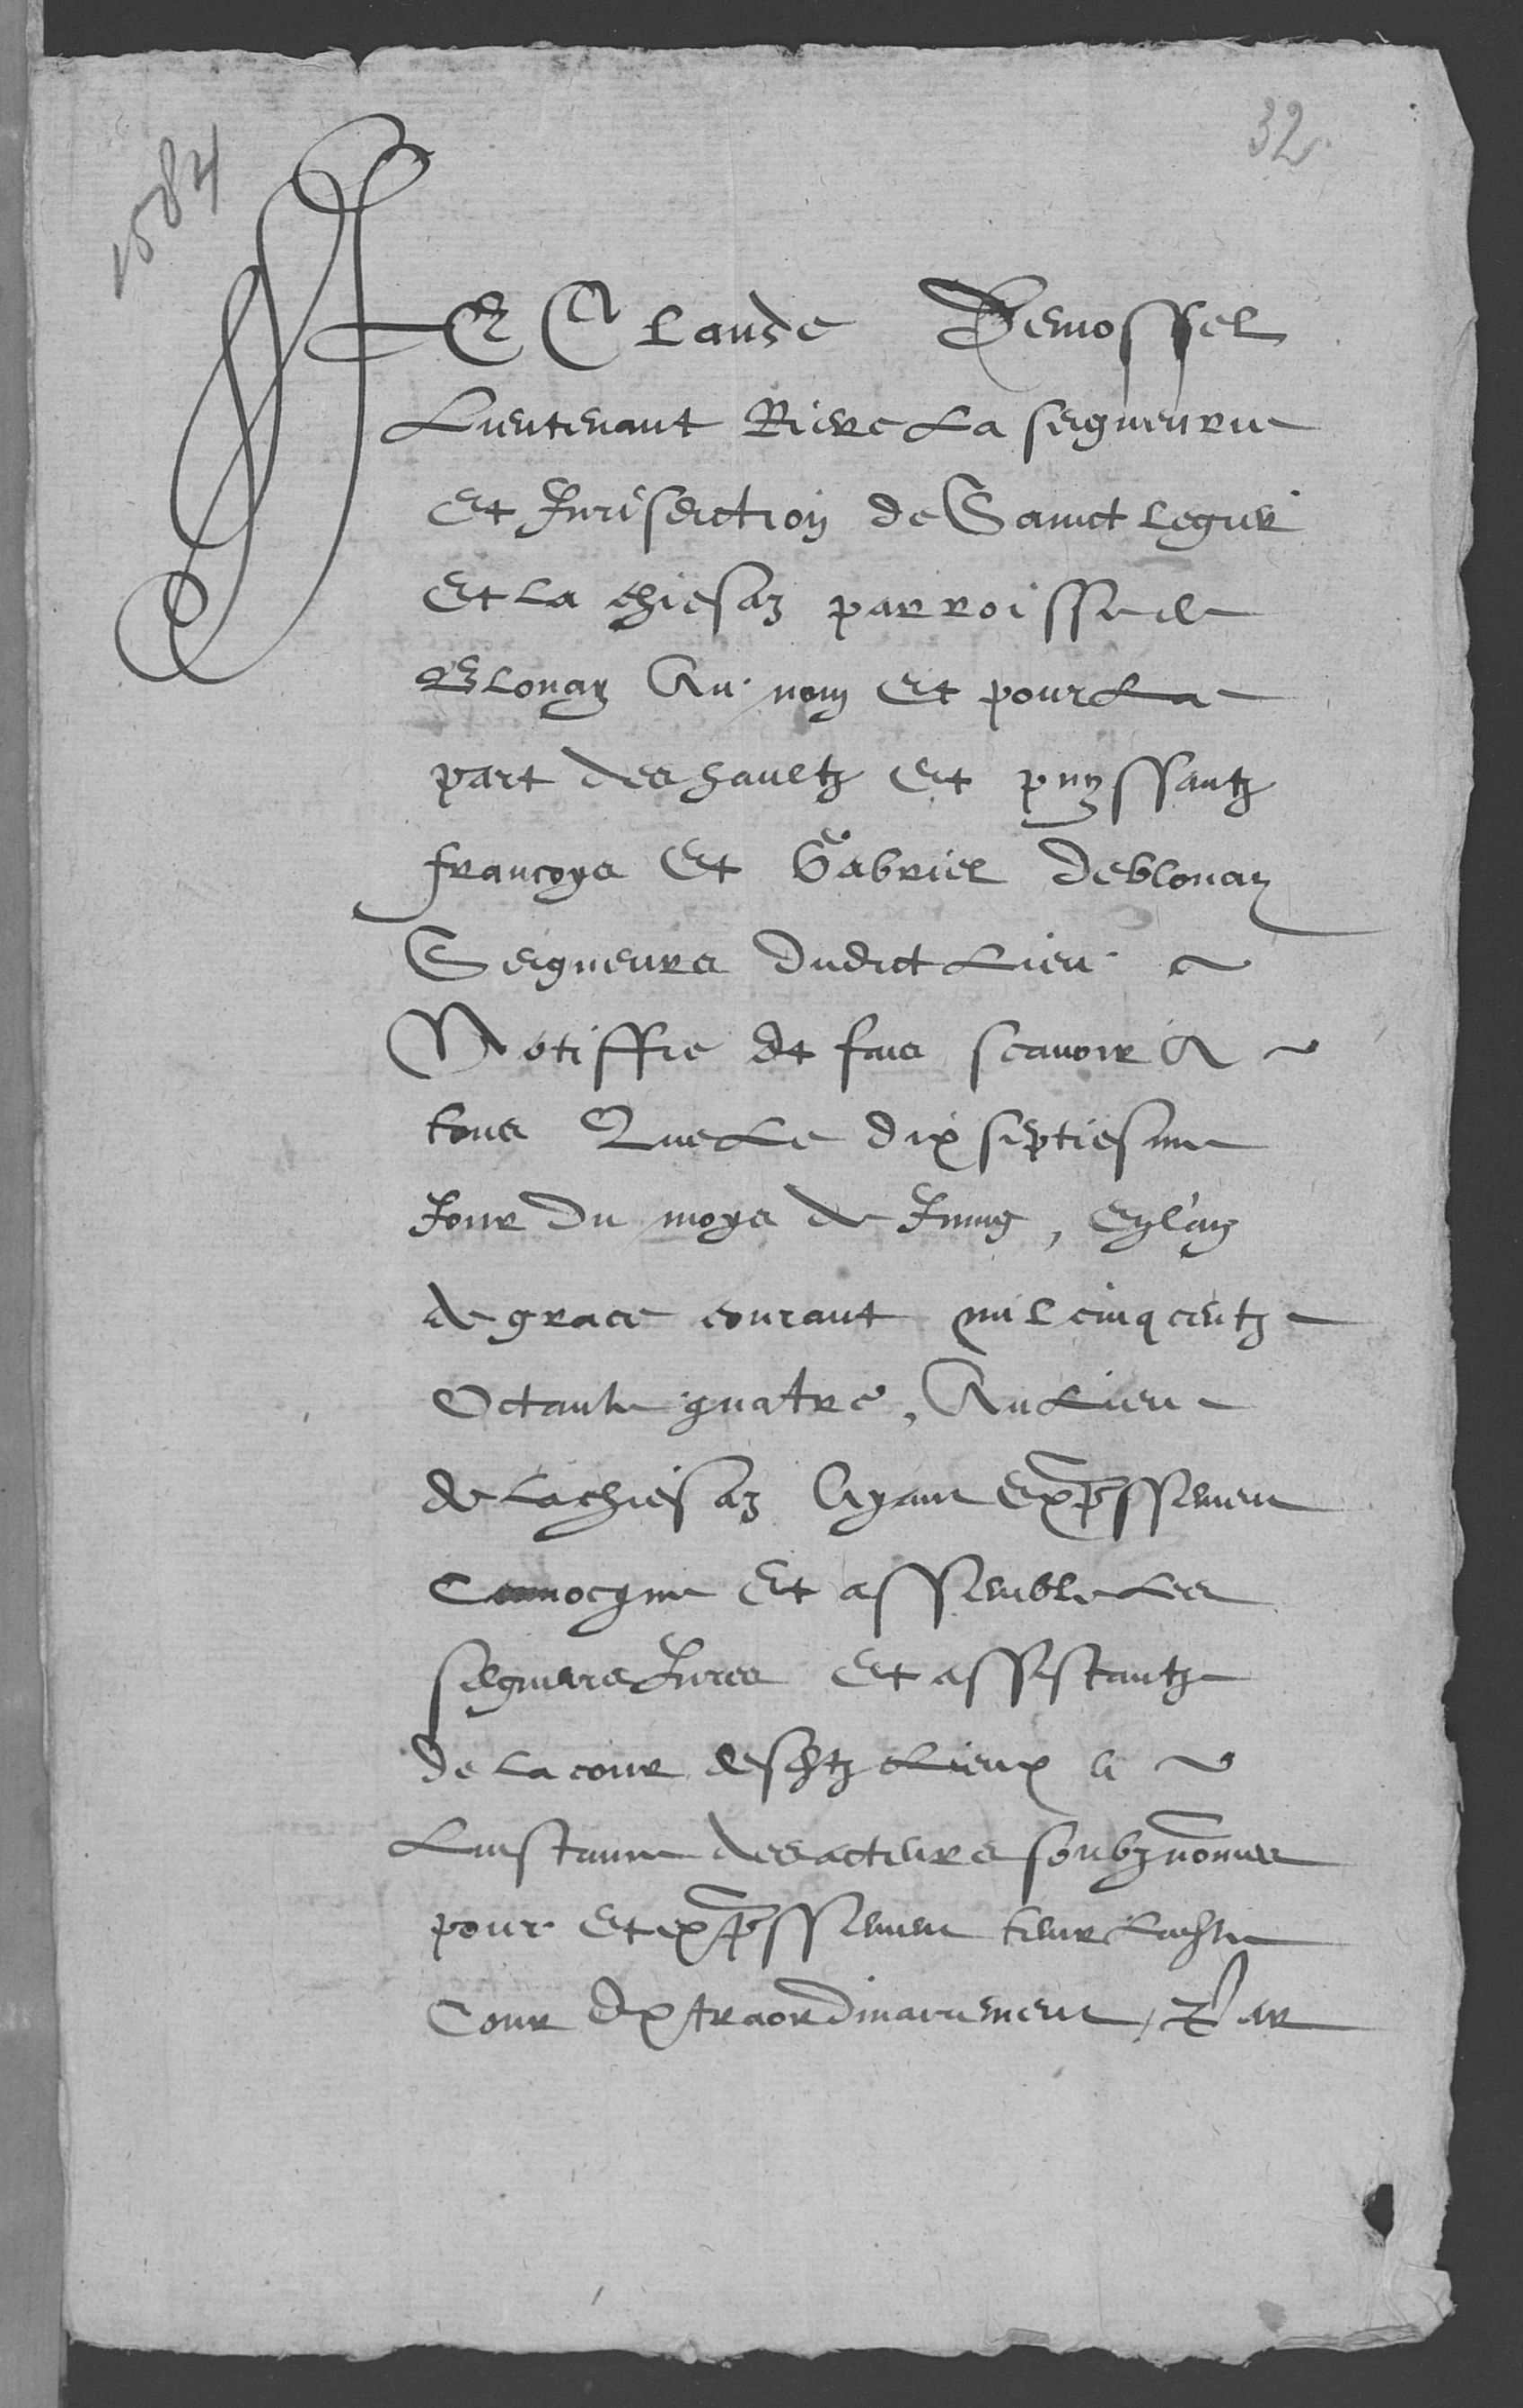 1584
32
JE Claude Demossel
Lieutenant Riere La seigneurie
Et Jurisdiction de Sainct legier
Et la chiesaz parroisse de
Blonay Au nom Et pour La
part des haultz Et puyssantz
francoys Et Gabriel de blonay
Seigneurs dudict Lieu
Notiffie Et fais scavoir A
tous Que Le dix septiesme
Jour du moys de Juing, En l'an
de grace courant mil cinq centz
Octante quatre, Au Lieu
de la chiesaz Ayant Expssement
Et assemble Les
Jures Et assistantz
de la cour desdtz Lieux A
Linstance des acteurs soubz nomes
pour Et expssement tenir Ladite
Cour Extraordinairement, Par